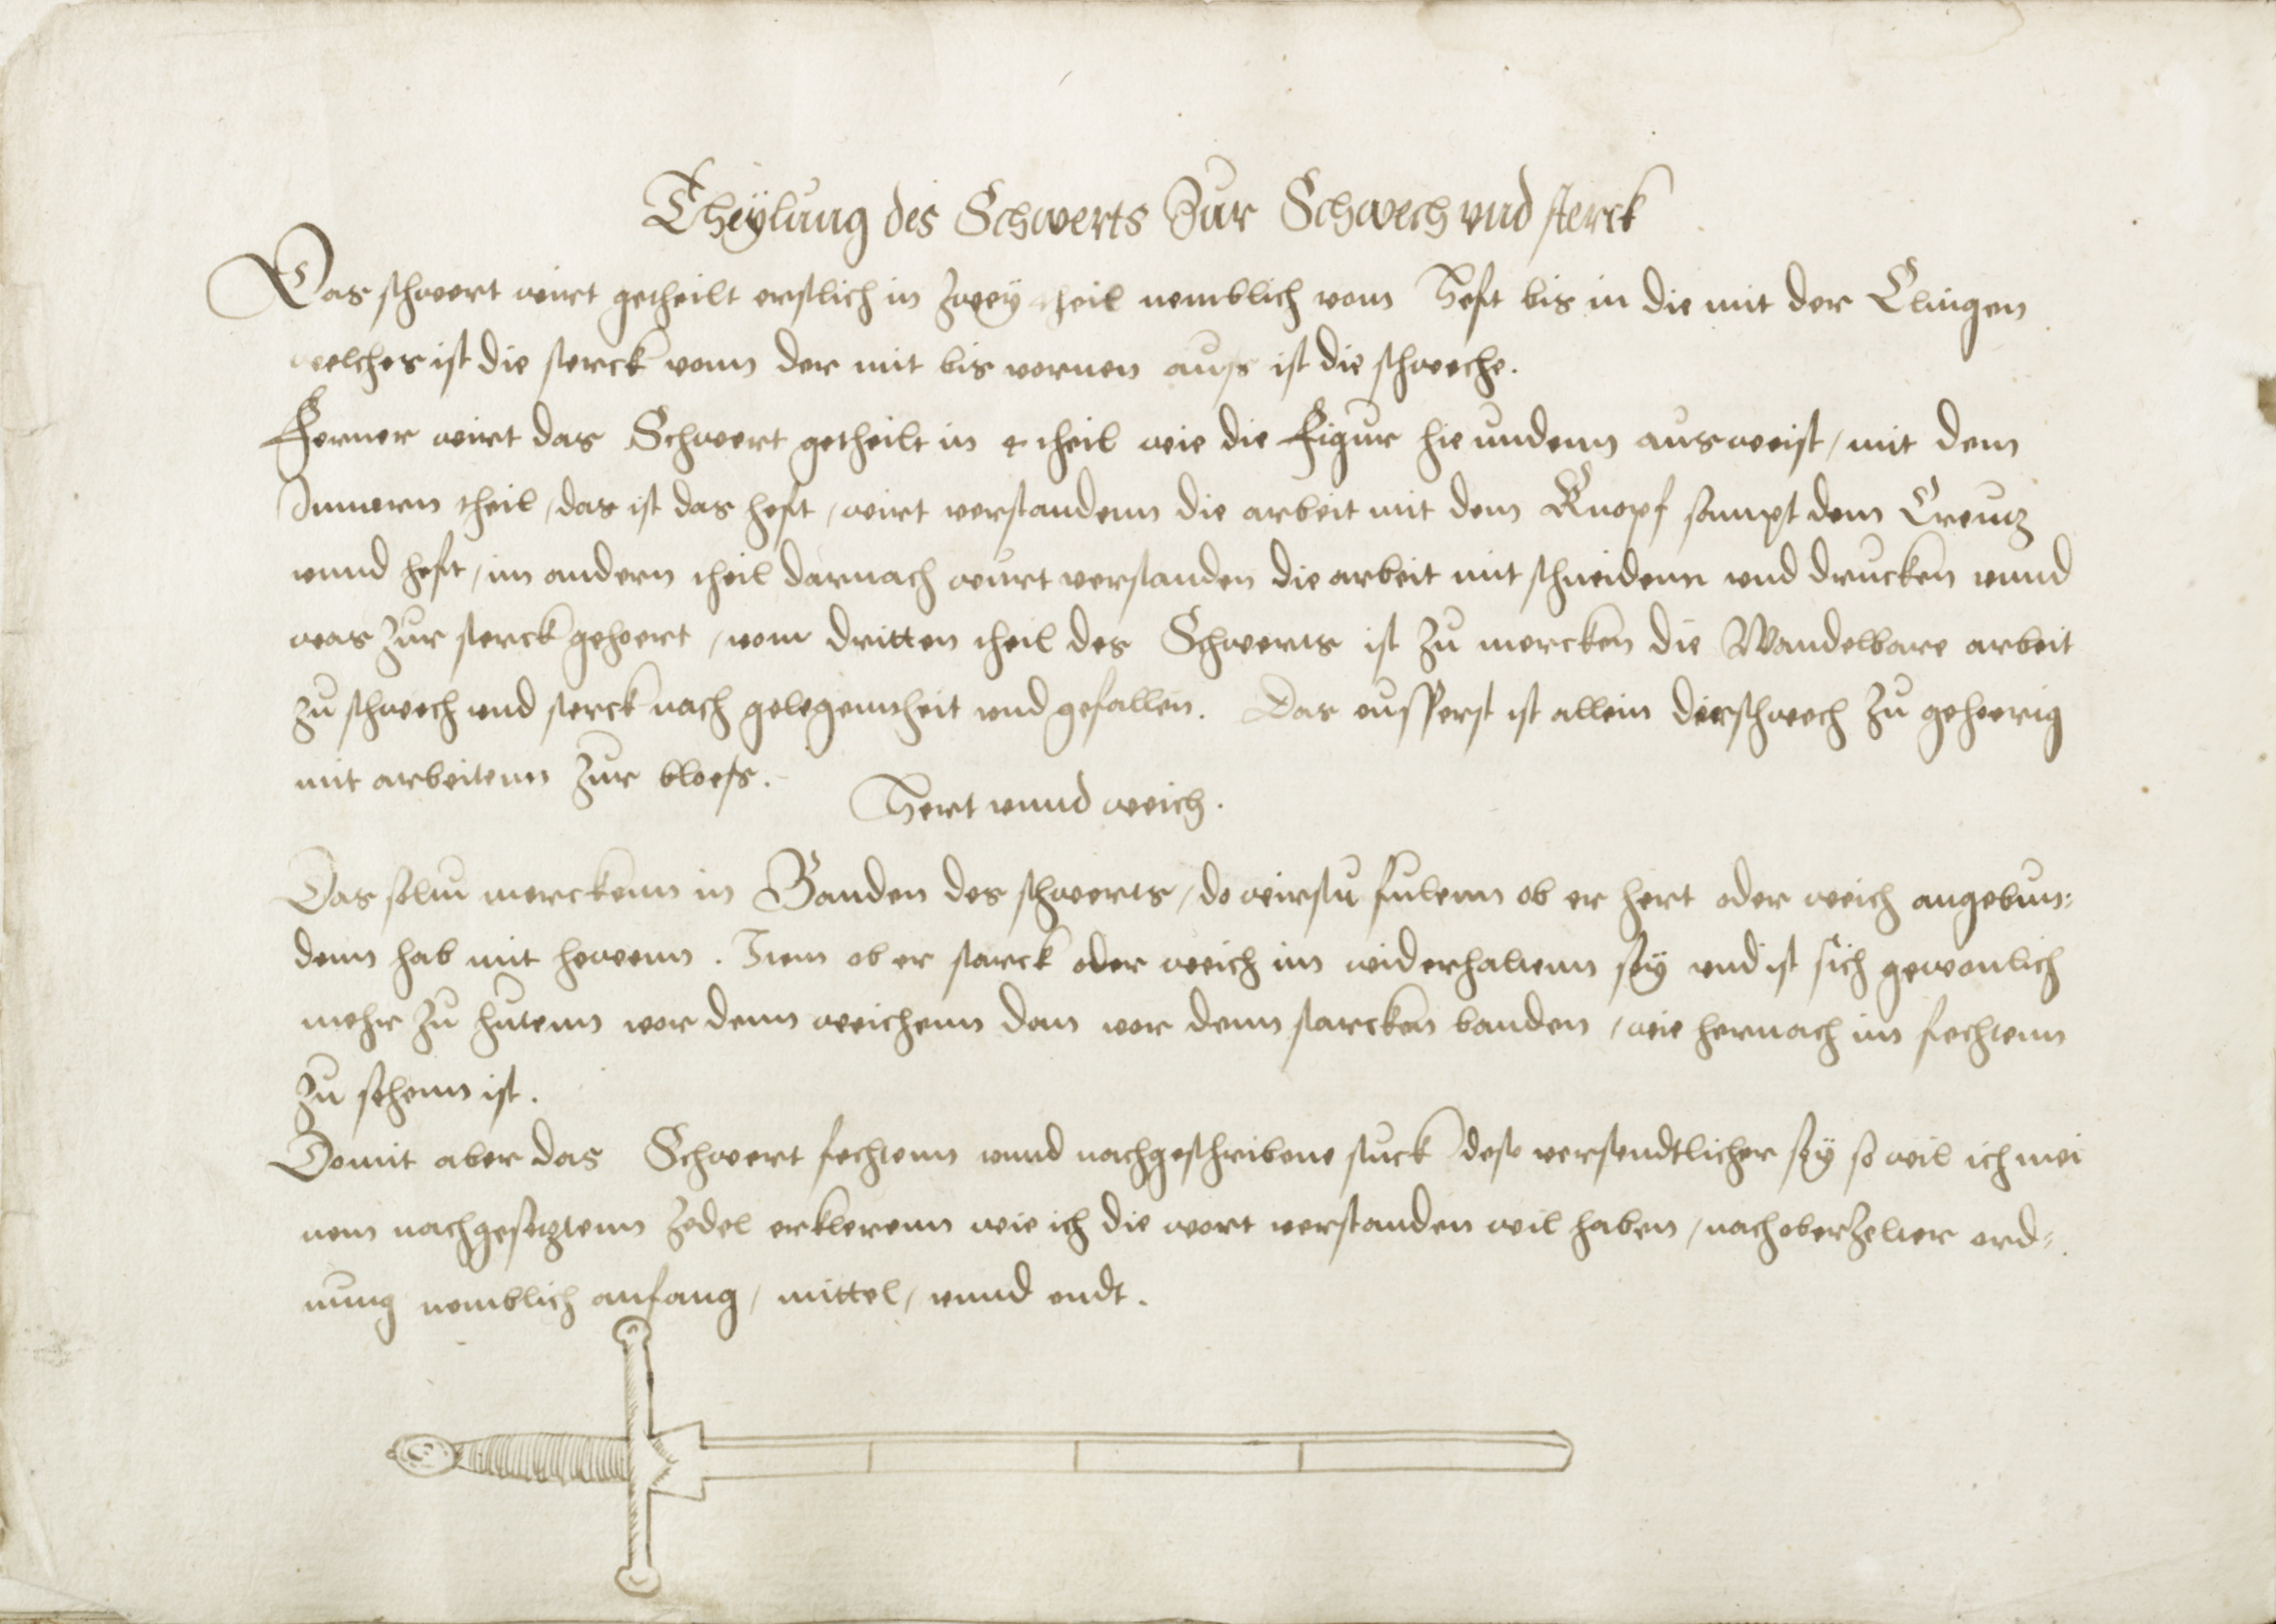 Theÿlung des Schwerts Zur Schwech vnd sterck
Das schwert wirt getheilt erstlich in zweÿ theil nemblich vom Heft bis in die mit der Clingen
welches ist die sterck vonn der mit bis vornen auss ist die schweche.
Ferner wirt das Schwert getheilt in 4 theil wie die Figur hie undenn ausweist / mit dem
Innwern theil / das ist das heft / wirt verstandenn die arbeit mit dem Knopf sampt dem Creutz
vnnd heft / im andern theil darnach wurt verstanden die arbeit mit schneidenn vnd drucken vnnd
was zur sterck gehoert / vom dritten theil des Schwerts ist zu mercken die Wandelbare arbeit
zu schwech vnd sterck nach gelegennheit vnd gefallen. Das eusserst ist allein der schwech zu gehoerig
mit arbeitenn zur bloess.
Hert vnnd weich.
Das soltu merckenn in Banden des schwerts / do wirstu fulenn ob er hert oder weich angebun=
denn hab mit hewenn. Item ob er starck oder weich im widerhaltenn seÿ vnd ist sich gewonlich
mehr zu hutenn vor denn weichenn dan vor denn starcken banden / wie hernach im fechtenn
zu sehenn ist.
Domit aber das Schwert fechtenn vnnd nachgeschribene stuck dest verstendtlicher seÿ so wil ich mei
nem nachgesetztenn zedel erklerenn wie ich die wort verstanden wil haben / nach oberzelter ord=
nung nemblich anfang / mittel / vnnd endt.